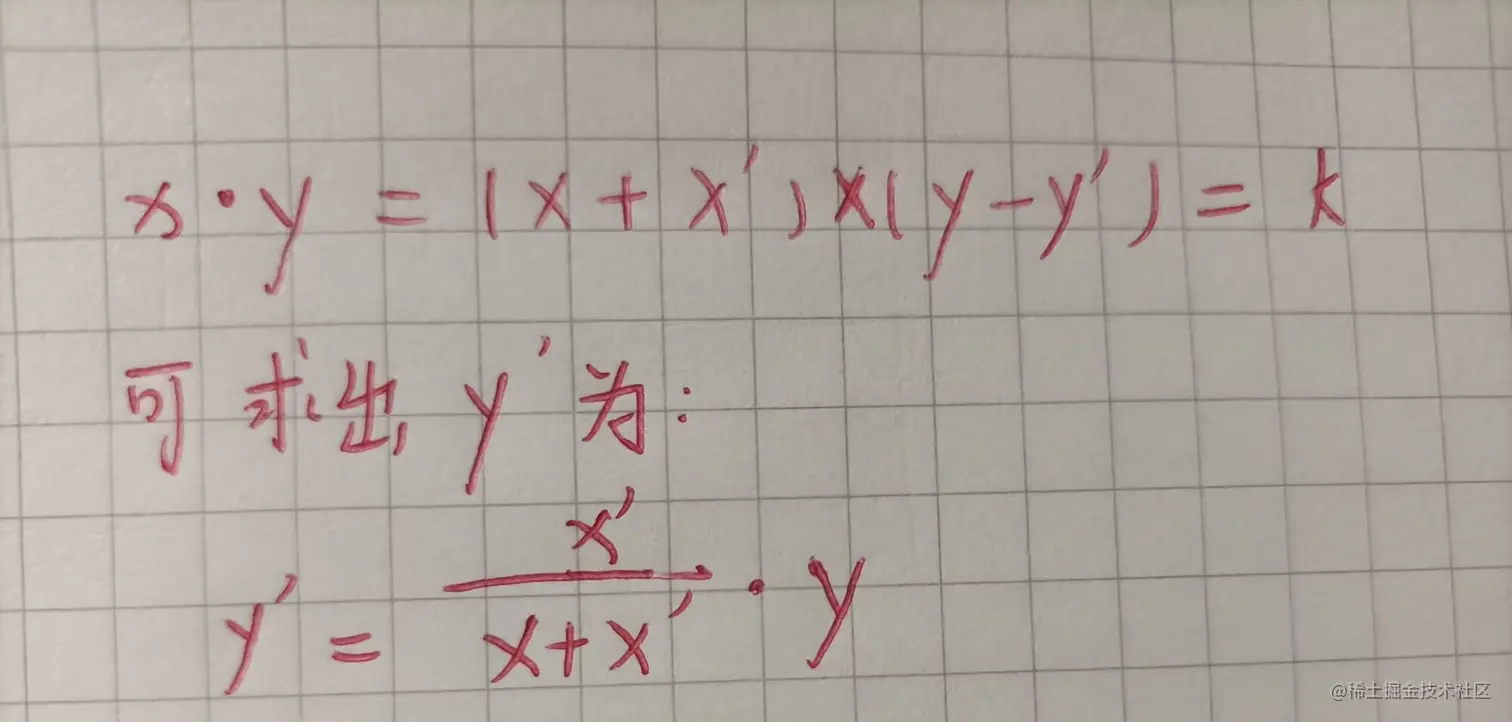 x·y = (x + x′)×(y-y′) = k
可求出 y′为:
y′ = x′/(x+x′) · y
@稀土掘金技术社区